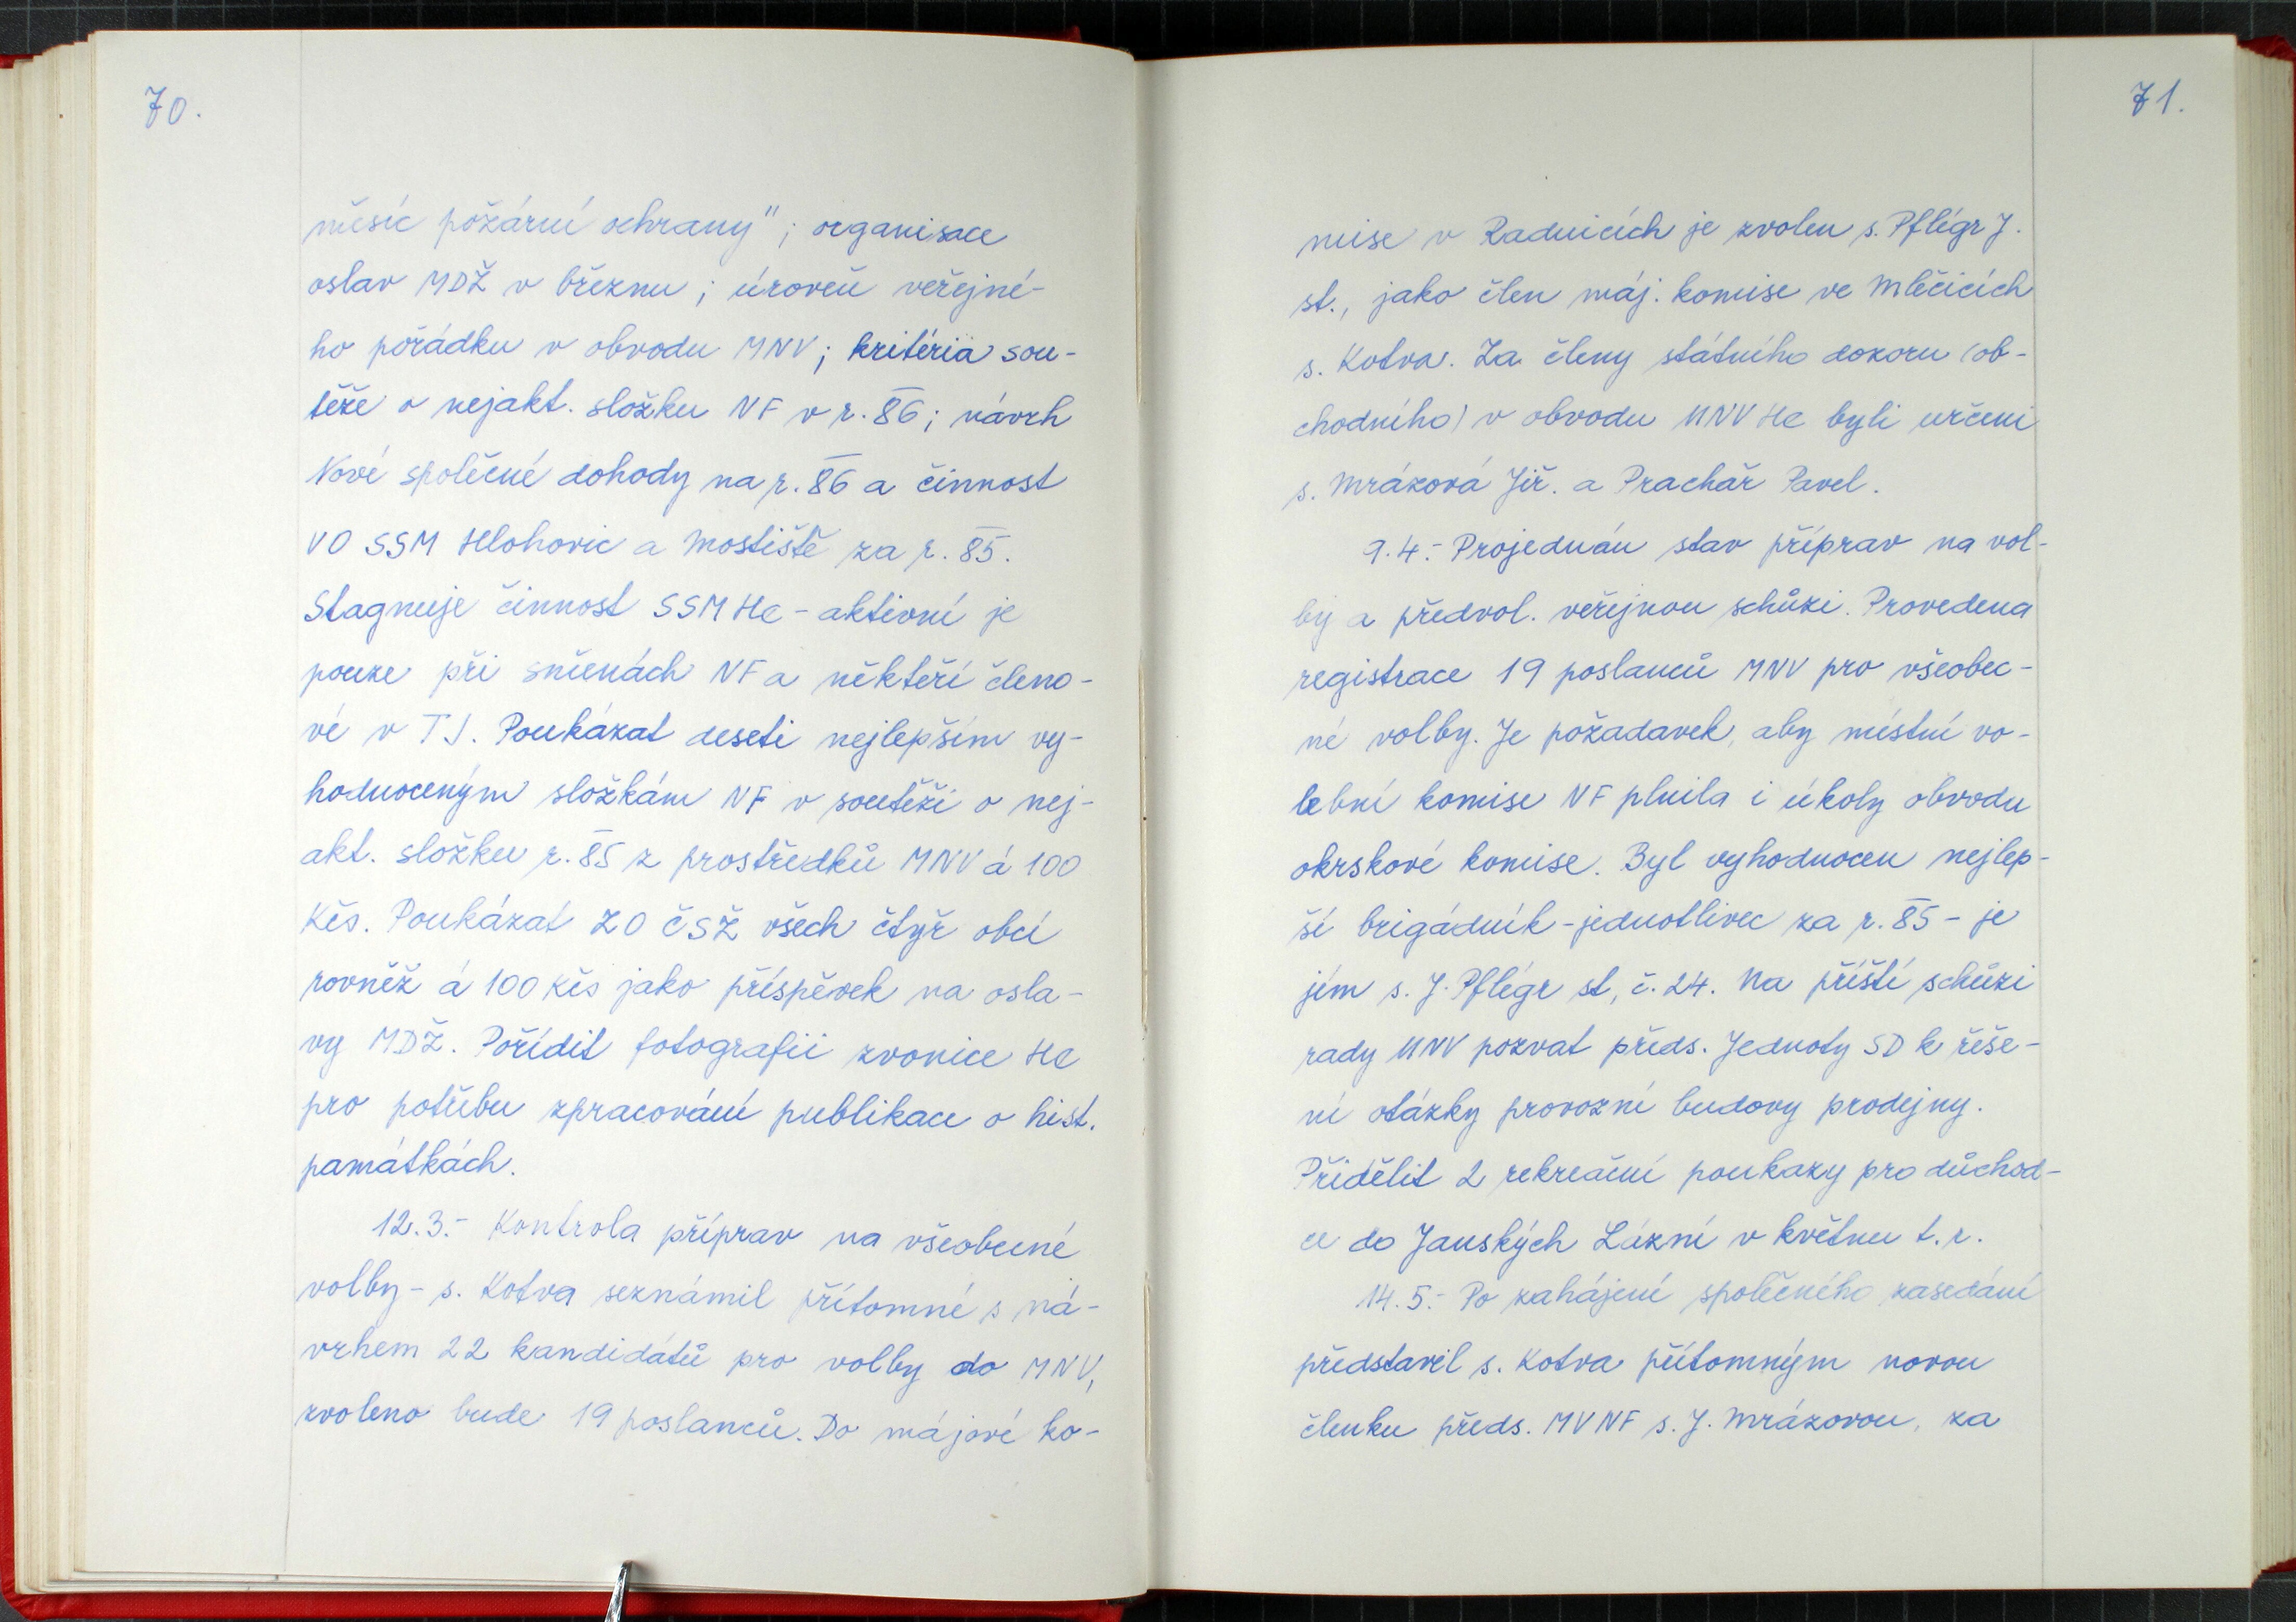 70.
měsíc požární ochrany"; organisace
oslav MDŽ v březnu; úroveň veřejné-
ho pořádku v obvodu MNV; kritéria sou-
těže o nejakt. složku NF v r. 86; návrh
Nové společné dohody na r. 86 a činnost
VO SSM Hlohovic a Mostiště za r. 85.
Stagnuje činnost SSM Hc - aktivní je
pouze při směnách NF a někteří členo-
vé v TJ. Poukázat deseti nejlepším vy-
hodnoceným složkám NF v soutěži o nej-
akt. složku r. 85 z prostředků MNV á 100
Kčs. Poukázat ZO ČSŽ všech čtyř obcí
rovněž á 100 Kčs jako příspěvek na osla-
vy MDŽ. Pořídit fotografii zvonice Hc
pro potřebu zpracování publikace o hist.
památkách.
12.3.- Kontrola příprav na všeobecné
volby - s. Kotva seznámil přítomné s ná-
vrhem 22 kandidátů pro volby do MNV,
zvoleno bude 19 poslanců. Do májové ko-
71.
mise v Radnicích je zvolen s. Pflégr J.
st., jako člen máj. komise ve Mlečicích
s. Kotva. Za členy státního dozoru (ob-
chodního) v obvodu MNV Hc byli určeni
s. Mrázová Jiř. a Prachař Pavel.
9.4.- Projednán stav příprav na vol-
by a předvol. veřejnou schůzi. Provedena
registrace 19 poslanců MNV pro všeobec-
né volby. Je požadavek, aby místní vo-
lební komise NF plnila i úkoly obvodu
okrskové komise. Byl vyhodnocen nejlep-
ší brigádník - jednotlivec za r. 85 - je
jím s. J. Pflégr st, č. 24. Na příští schůzi
rady MNV pozvat předs. Jednoty SD k řeše-
ní otázky provozní budovy prodejny.
Přidělit 2 rekreační poukazy pro důchod-
ce do Janských Lázní v květnu t. r.
14.5.- Po zahájení společného zasedání
představil s. Kotva přítomným novou
členku předs. MV NF s. J. Mrázovou, za